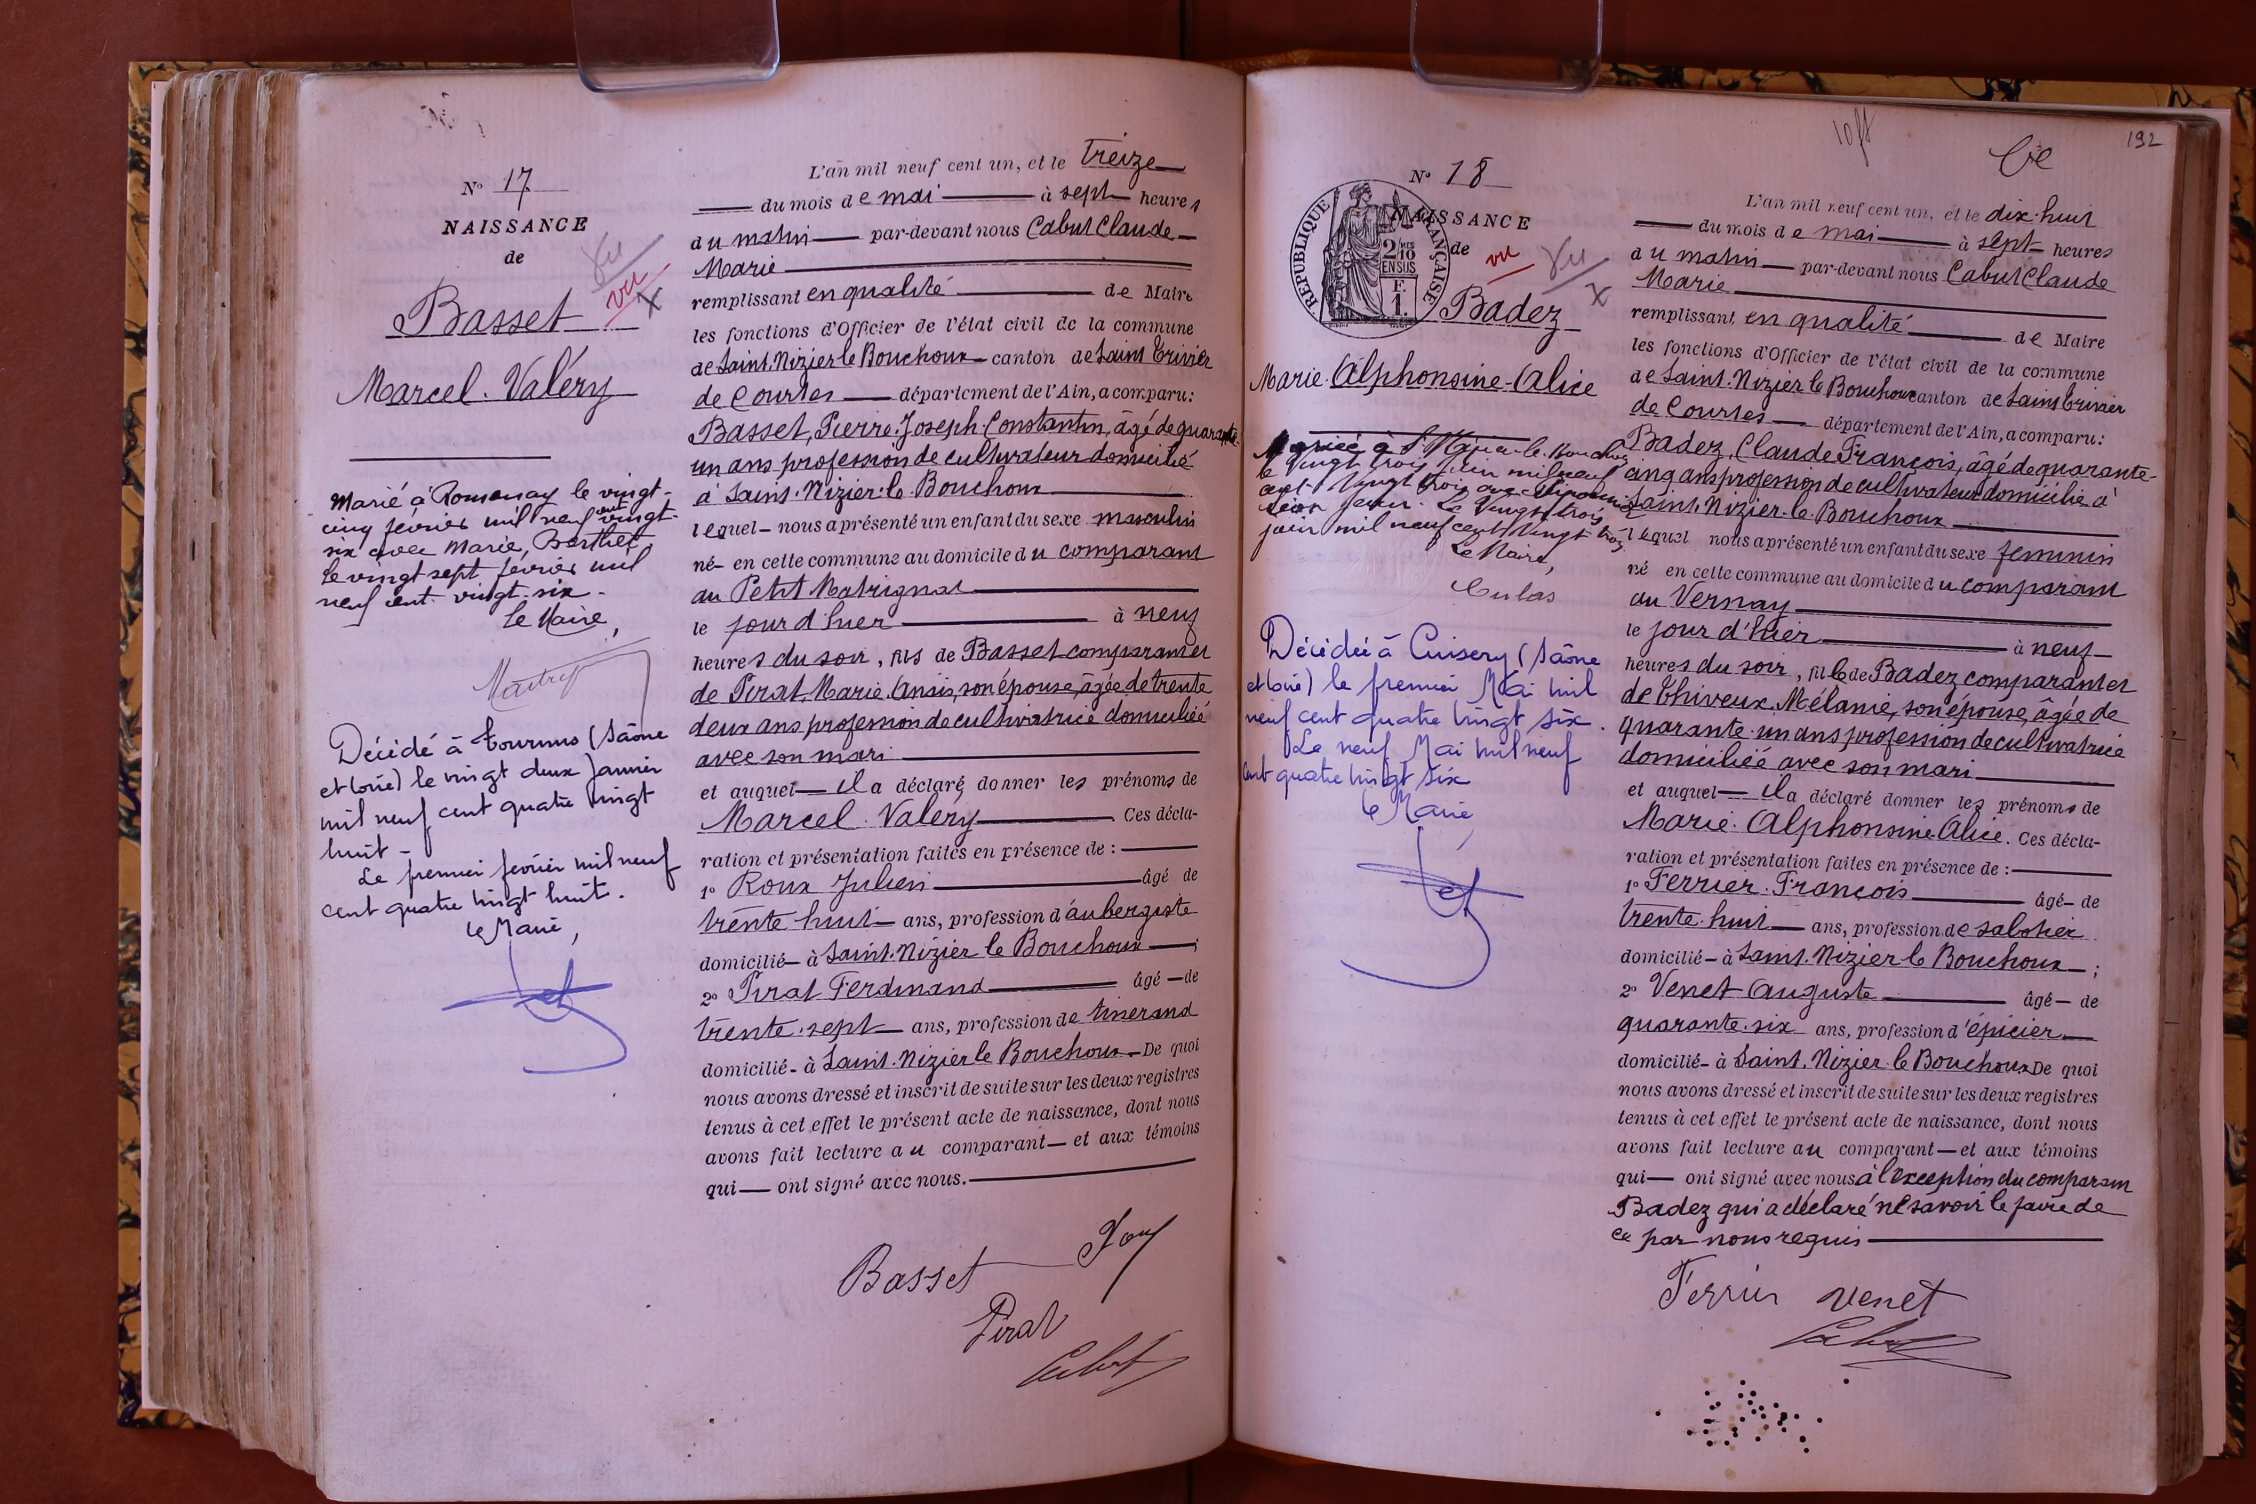 N° 17
NAISSANCE
de
Vu
vu
x
Basset
Marcel. Valéry
Marié à Romenay le vingt-
cinq février mil neuf cent vingt-
six avec Marie, Berthet
le vingt sept février mil
neuf cent vingt-six.
Le Maire,
Décédé à Tournus (Saône
et Loire) le vingt deux Janvier
mil neuf cent quatre vingt
huit -
Le premier février mil neuf
cent quatre vingt huit.
Le Maire,
L'an mil neuf cent un, et le treize
du mois de mai à sept heures
du matin par-devant nous Cabut Claude
Marie
remplissant en qualité de Maire
les fonctions d'Officier de l'état civil de la commune
de Saint. Nizier le Bouchoux canton de Saint Trivier
de Courtes département de l'Ain, a comparu:
Basset, Pierre. Joseph. Constantin, âgé de quarante
un ans profession de cultivateur domicilié
à Saint. Nizier. le. Bouchoux
lequel nous a présenté un enfant du sexe masculin
né en cette commune au domicile du comparant
au Petit Matrignat
le jour d'hier à neuf
heures du soir, fils de Basset comparant et
de Pirat, Marie. son épouse, âgée de trente
deux ans profession de cultivatrice domiciliée
avec son mari
et auquel il a déclaré donner les prénoms de
Marcel. Valéry Ces décla-
ration et présentation faites en présence de :
1° Roux Julien âgé de
trente huit ans, profession d'aubergiste
domicilié à Saint. Nizier le Bouchoux ;
2° Pirat Ferdinand âgé de
trente. sept ans, profession de tisserand
domicilié à Saint. Nizier le Bouchoux De quoi
nous avons dressé et inscrit de suite sur les deux registres
tenus à cet effet le présent acte de naissance, dont nous
avons fait lecture au comparant et aux témoins
qui ont signé avec nous.
Basset
Pirat
Cabut
192
N° 18
NAISSANCE
de
RÉPUBLIQUE FRANÇAISE
2/10 EN SUS
F.
1.
vu
Vu
x
Badez
Marie. Alphonsine. Alice
Mariée à St Nizier-le-Bouchoux
le vingt trois juin mil neuf
cent vingt trois avec
Le vingt trois
juin mil neuf cent vingt trois
Le Maire,
Décédée à Cuisery (Saône
et Loire) le premier Mai mil
neuf cent quatre vingt six.
Le neuf Mai mil neuf
cent quatre vingt six
Le Maire,
L'an mil neuf cent un, et le dix. huit
du mois de mai à sept heures
du matin par-devant nous Cabut Claude
Marie
remplissant en qualité de Maire
les fonctions d'Officier de l'état civil de la commune
de Saint. Nizier le Bouchoux canton de Saint Trivier
de Courtes département de l'Ain, a comparu:
Badez, Claude François, âgé de quarante-
cinq ans profession de cultivateur domicilié à
Saint. Nizier. le. Bouchoux
lequel nous a présenté un enfant du sexe féminin
né en cette commune au domicile du comparant
au Vernay
le jour d'hier à neuf
heures du soir, fille de Badez comparant et
de Thiveux Mélanie, son épouse, âgée de
quarante. un ans profession de cultivatrice
domiciliée avec son mari
et auquel il a déclaré donner les prénoms de
Marie. Alphonsine Alice. Ces décla-
ration et présentation faites en présence de :
1° Ferrier. François âgé de
trente. huit ans, profession de sabotier
domicilié à Saint. Nizier le Bouchoux ;
2° Venet Auguste âgé de
quarante. six ans, profession d'épicier
domicilié à Saint. Nizier. le Bouchoux De quoi
nous avons dressé et inscrit de suite sur les deux registres
tenus à cet effet le présent acte de naissance, dont nous
avons fait lecture au comparant et aux témoins
qui ont signé avec nous à l'exception du comparant
Badez qui a déclaré ne savoir le faire de
ce par nous requis
Ferrier Venet
Cabut